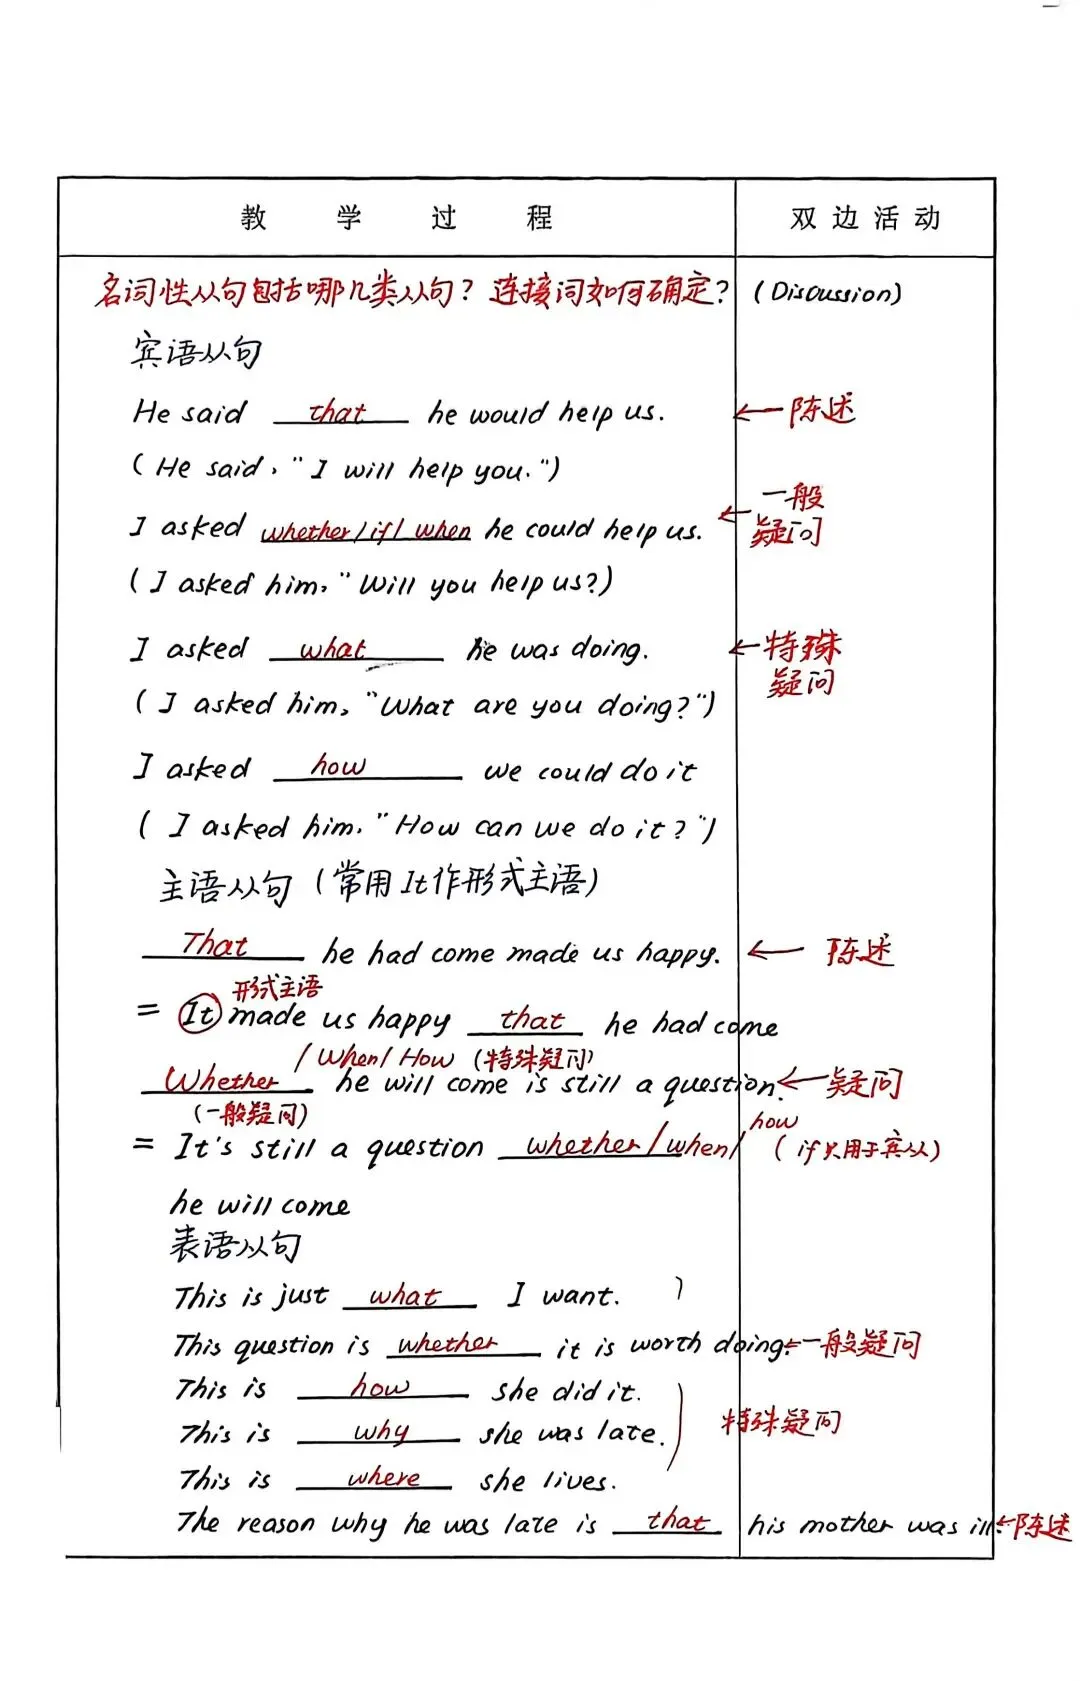 教学过程 双边活动
名词性从句包括哪几类从句？连接词如何确定？ (Discussion)
宾语从句
He said that he would help us. ←陈述
(He said, "I will help you.")
I asked whether/if/when he could help us. ←一般疑问
(I asked him, "Will you help us?)
I asked what he was doing. ←特殊疑问
(I asked him, "What are you doing?")
I asked how we could do it
(I asked him, "How can we do it?")
主语从句（常用It作形式主语）
That he had come made us happy. ← 陈述
形式主语
= It made us happy that he had come
/When/How (特殊疑问)
Whether he will come is still a question. ←疑问
(一般疑问)
= It's still a question whether/when/how (if只用于宾从)
he will come
表语从句
This is just what I want.
This question is whether it is worth doing. ←一般疑问
This is how she did it.
This is why she was late. 特殊疑问
This is where she lives.
The reason why he was late is that his mother was ill. ←陈述